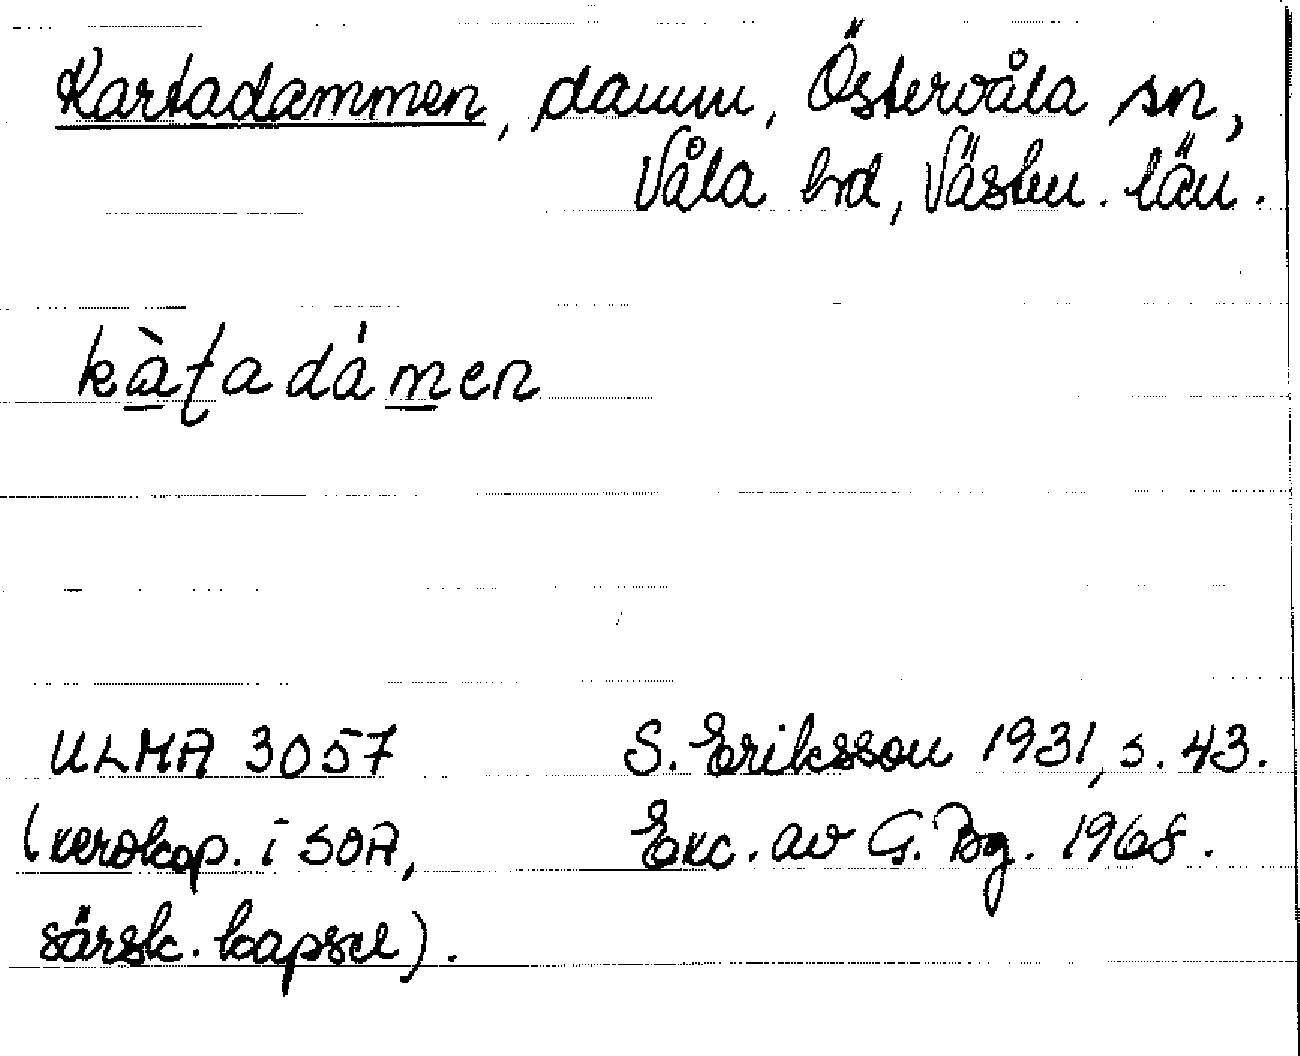 Kartadammen, damm, Östervåla sn,
Våla hrd, Västm. län.
kàʈadámen
ULMA 3057 S. Eriksson 1931, s. 43.
(xerokop. i SOA, Exc. av G. Bg. 1968.
särsk. kapsel).